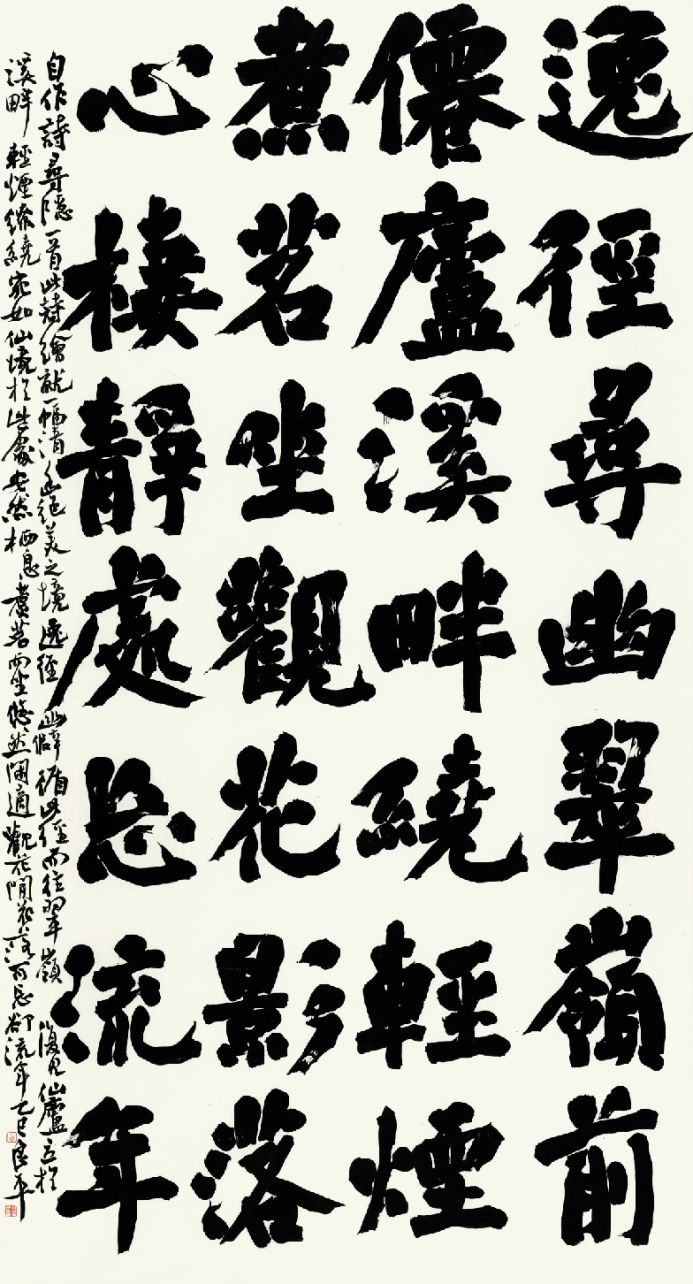 逸徑尋幽翠嶺前
僊廬溪畔繞輕煙
煮茗坐觀花影落
心棲靜處忘流年
自作詩尋隱一首此詩繪就一幅清幽絕美之境逸徑幽僻循此徑而往翠嶺復見仙廬立於
溪畔輕煙繚繞宛如仙境於此處安然栖息煮茗而坐悠然閑適觀花開花落而忘卻流年乙巳